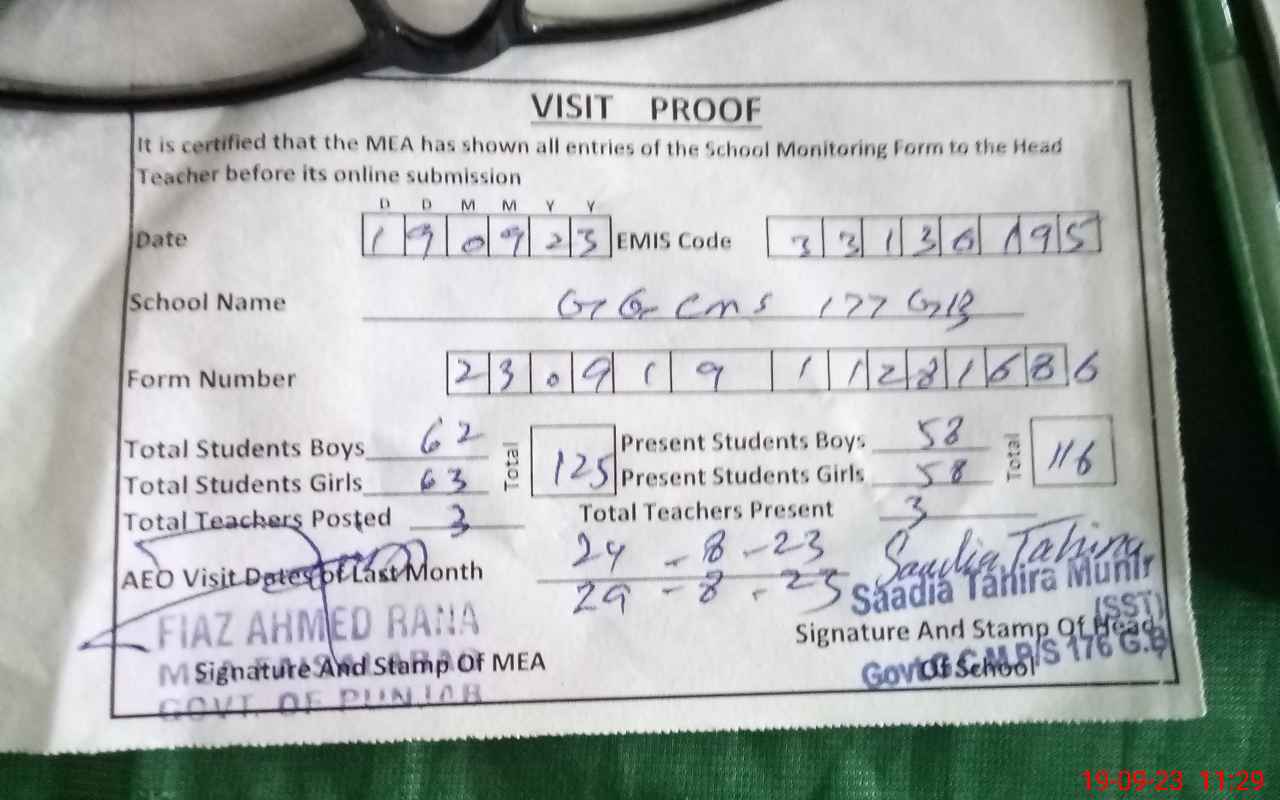 VISIT PROOF
It is certified that the MEA has shown all entries of the School Monitoring Form to the Head
Teacher before its online submission
D D M M Y Y
Date 1 9 0 9 2 3 EMIS Code 3 3 1 3 0 1 9 5
School Name GGCMS 177 GB
Form Number 2 3 0 9 1 9 1 1 2 8 1 6 8 6
Total Students Boys 62 Total 125 Present Students Boys 58 Total 116
Total Students Girls 63 Present Students Girls 58
Total Teachers Posted 3 Total Teachers Present 3
AEO Visit Dates of Last Month 24-8-23
29-8-23
Saadia Tahira
Saadia Tahira Munir
(SST)
FIAZ AHMED RANA
Signature And Stamp Of MEA
GOVT. OF PUNJAB
Signature And Stamp Of Head
Of School
176 G.B
19-09-23 11:29